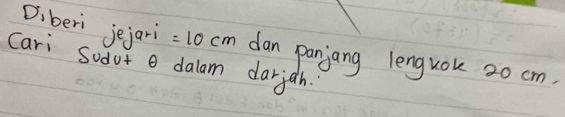 Diberi jejari = 10 cm dan panjang lengkok 20 cm.
Cari sudut θ dalam darjah.